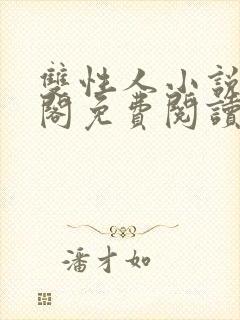 雙性人小說
閣免費閱讀
潘才如